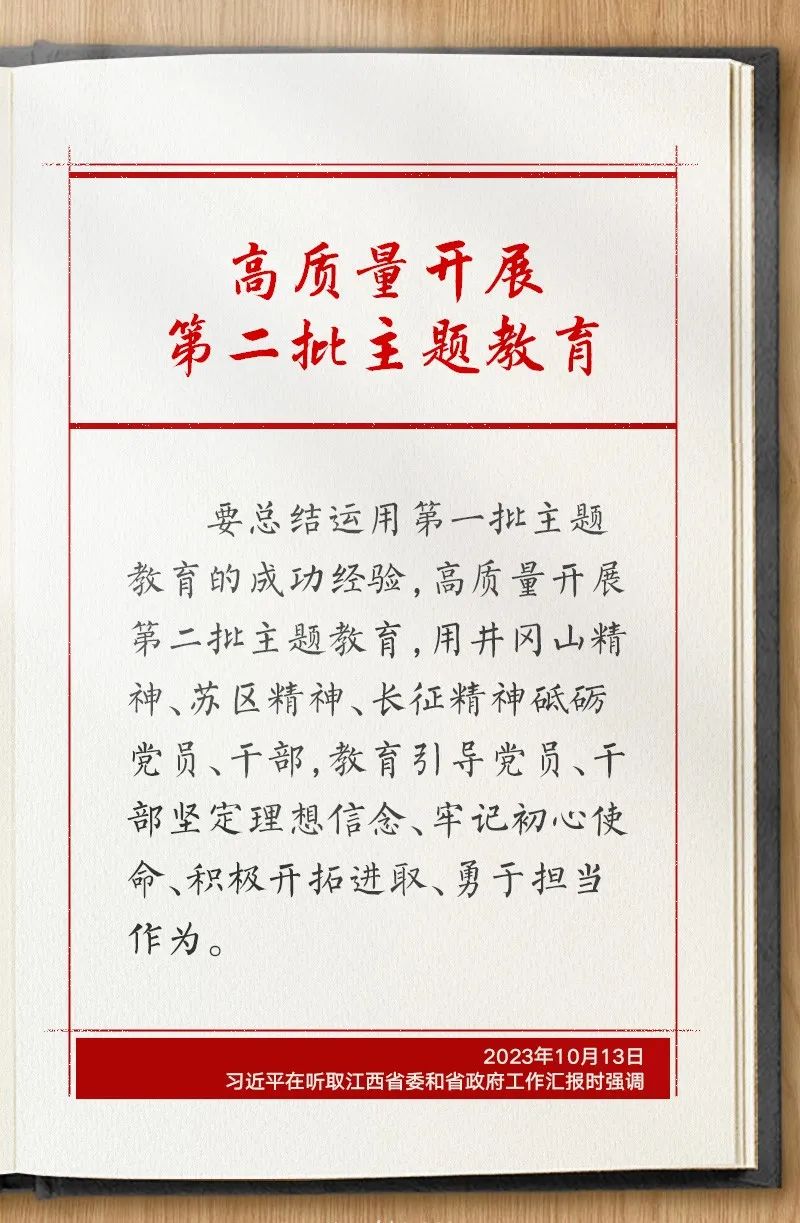 高质量开展
第二批主题教育
要总结运用第一批主题
教育的成功经验,高质量开展
第二批主题教育,用井冈山精
神、苏区精神、长征精神砥砺
党员、干部,教育引导党员、干
部坚定理想信念、牢记初心使
命、积极开拓进取、勇于担当
作为。
2023年10月13日
习近平在听取江西省委和省政府工作汇报时强调